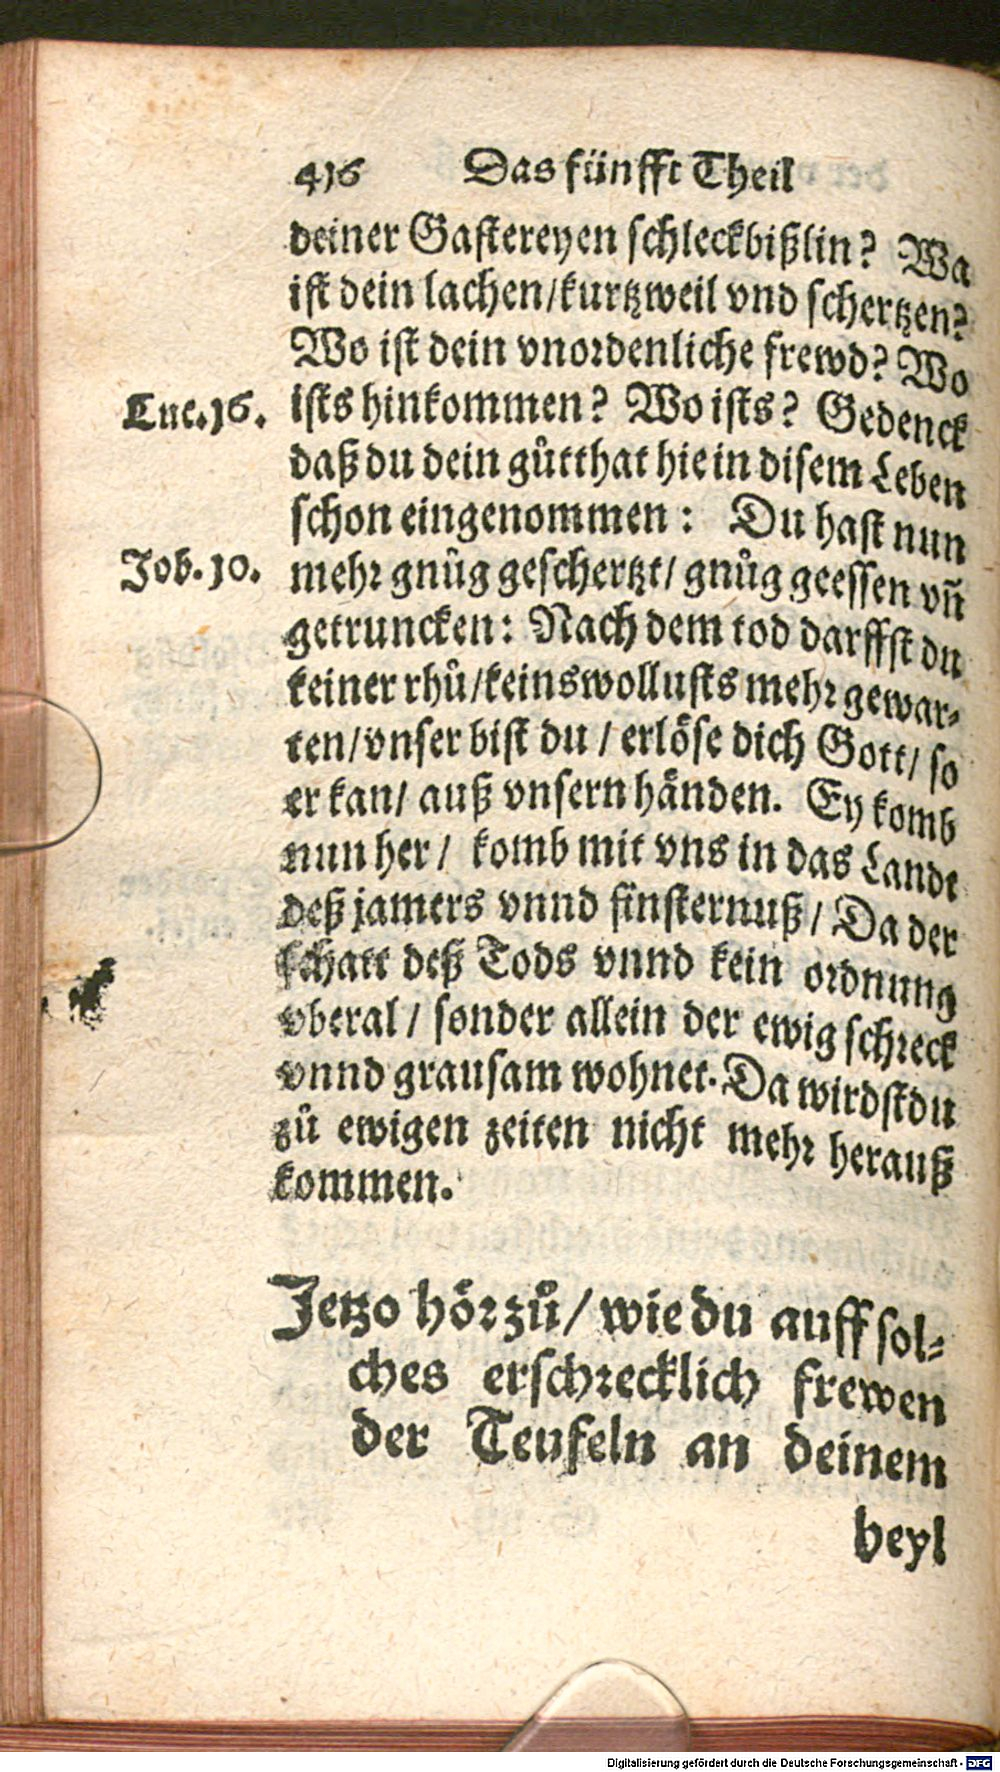 416 Das fünfft Theil
deiner Gastereyen schleckbißlin? Wa
ist dein lachen/kurtzweil vnd schertzen?
Wo ist dein vnordenliche frewd? Wo
Luc.16. ists hinkommen? Wo ists? Gedenck
daß du dein gůtthat hie in disem Leben
schon eingenommen: Du hast nun
Job.10. mehr gnůg geschertzt/ gnůg geessen vñ
getruncken: Nach dem tod darffst du
keiner rhů/keins wollusts mehr gewar-
ten/vnser bist du/ erlöse dich Gott/ so
er kan/ auß vnsern händen. Ey komb
nun her/ komb mit vns in das Landt
deß jamers vnnd finsternuß/ Da der
schatt deß Tods vnnd kein ordnung
vberal/ sonder allein der ewig schreck
vnnd grausam wohnet. Da wirdst du
zů ewigen zeiten nicht mehr herauß
kommen.
Jetzo hör zů/ wie du auff sol-
ches erschrecklich frewen
der Teufeln an deinem
heyl
Digitalisierung gefördert durch die Deutsche Forschungsgemeinschaft - DFG